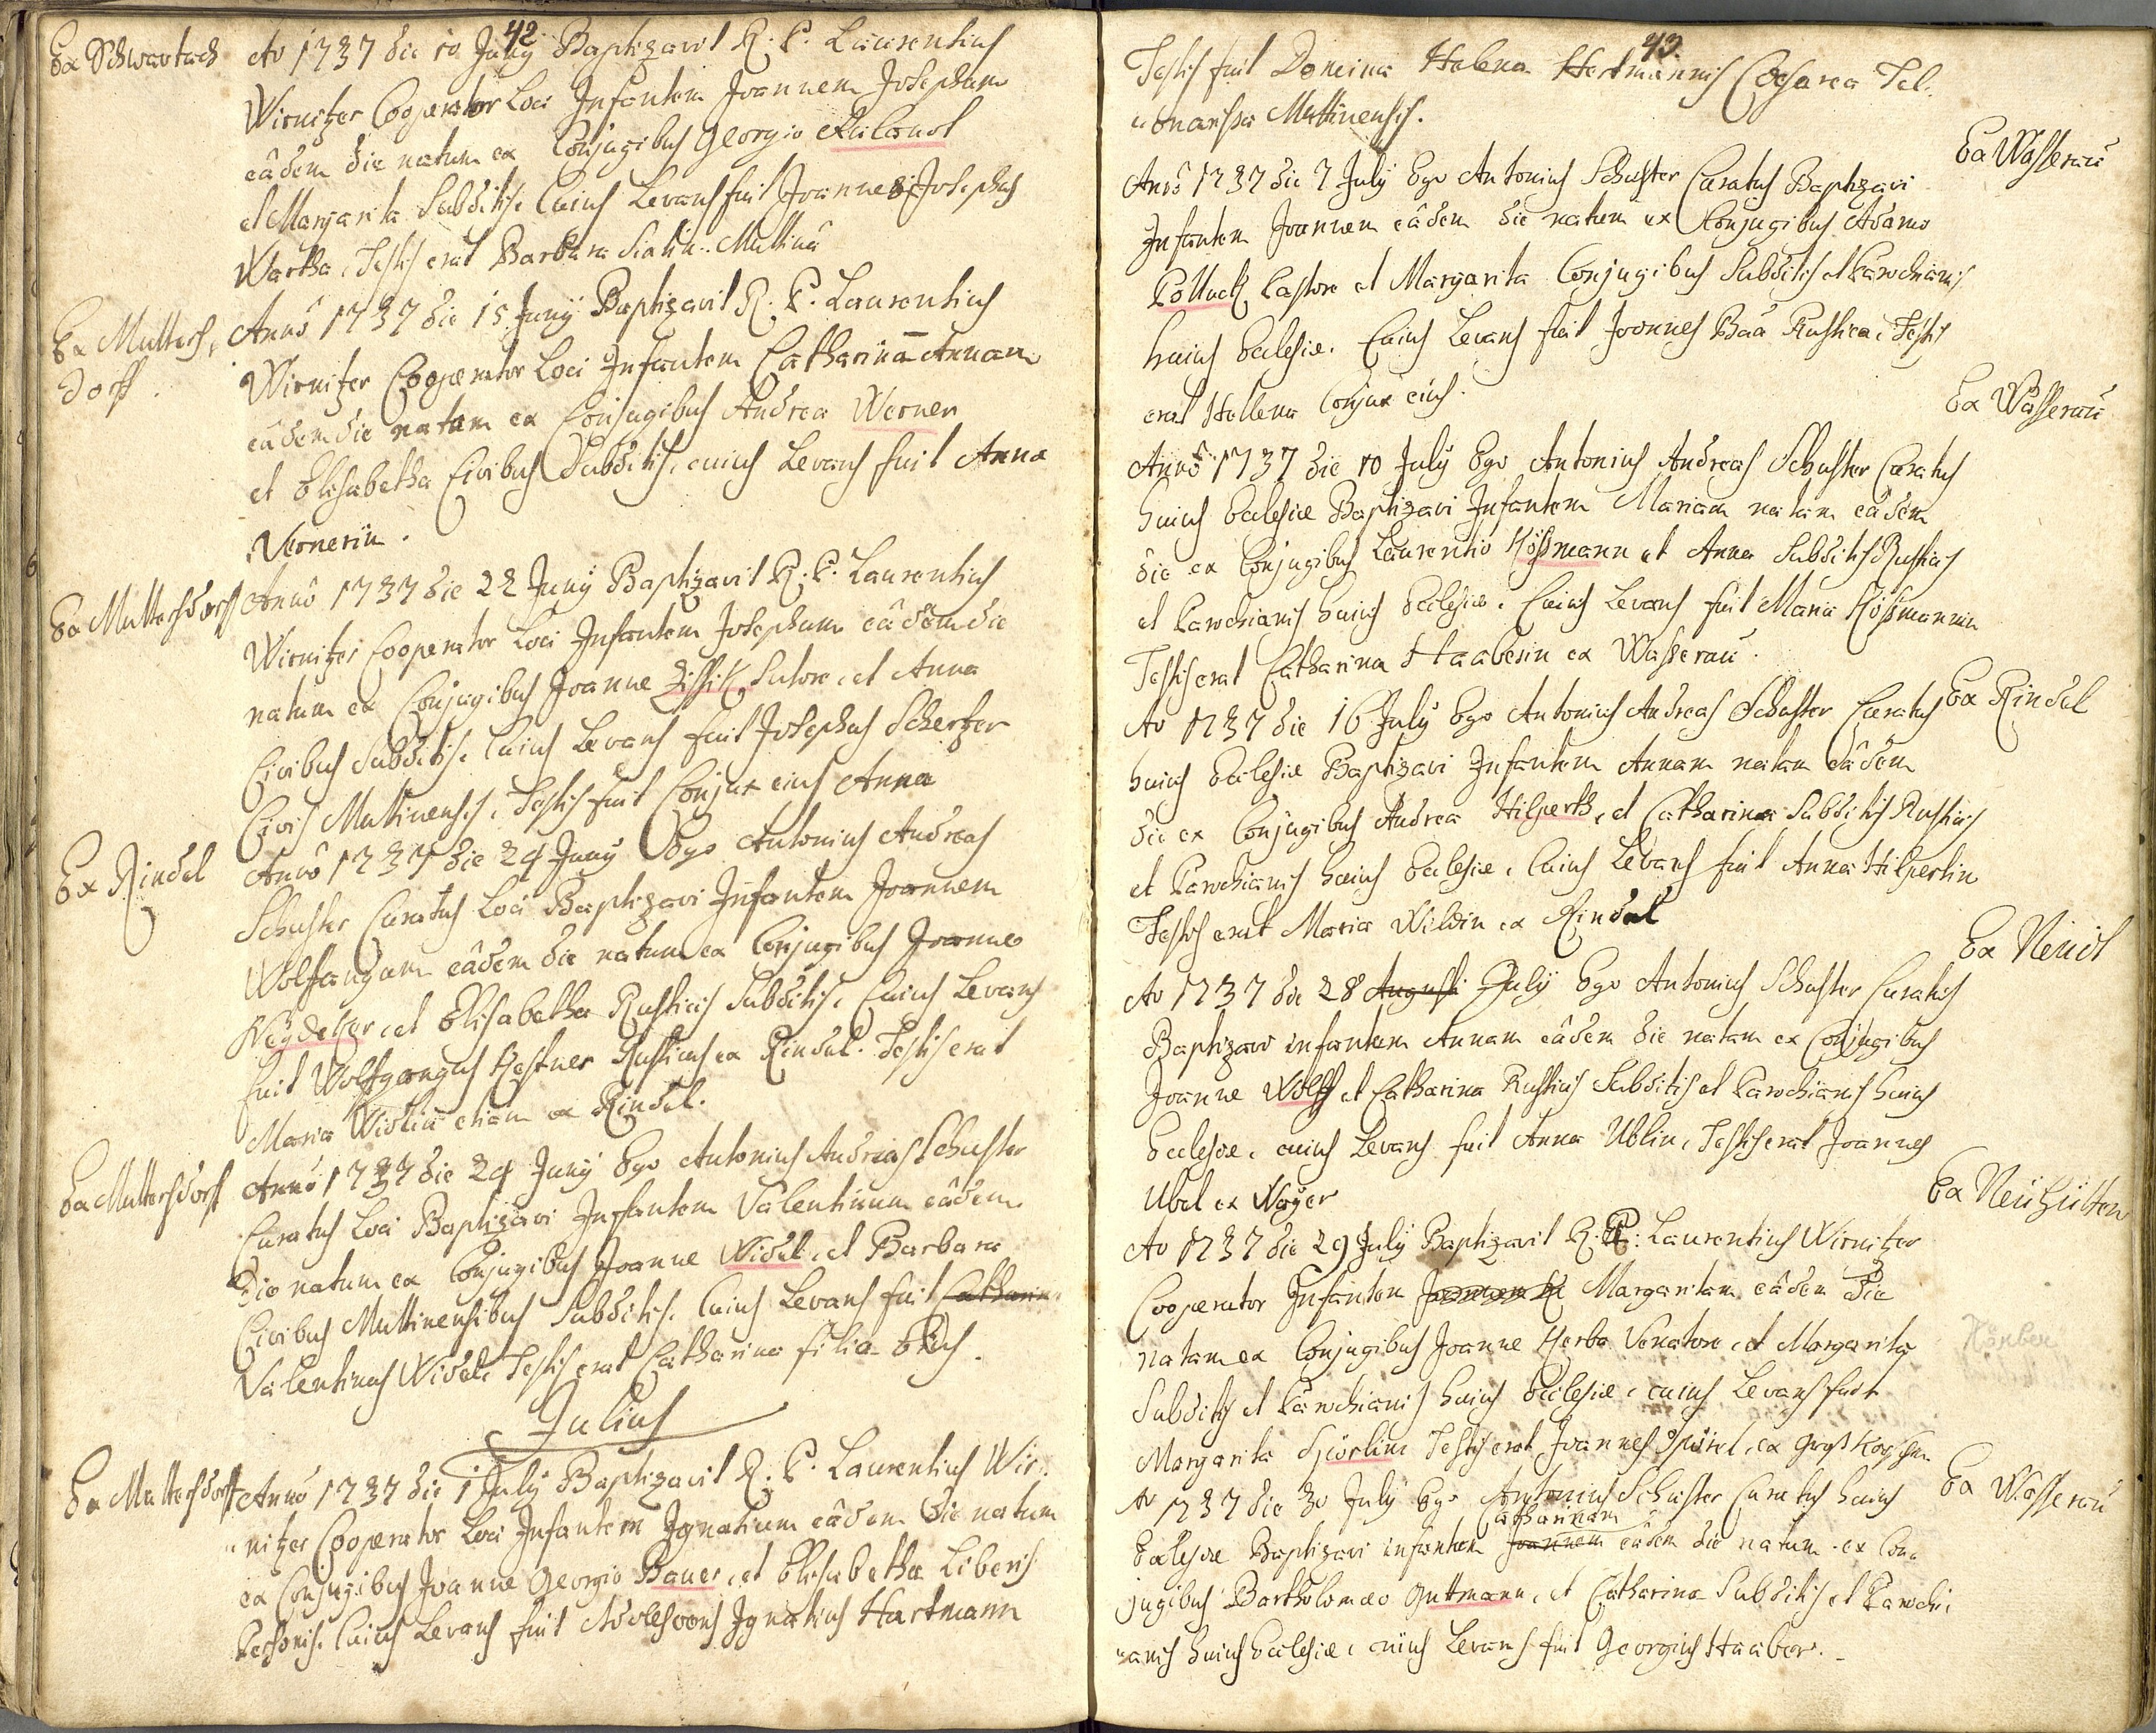 42
Ex Schwartach
Ao 1737 die 10 Juny Baptizavit R. P. Laurentius
Wirnitzer Cooperator Loci Infantem Joannem Josephum
eâdem die natum ex Conjugibus Georgio
et Margarita Subditis. Cuius Levans fuit Joannes Josephus
Wartha, Testis erat Barbara
Ex Mutters,
dorff.
Annô 1737 die 15 Juny Baptizavit R. P. Laurentius
Wirnitzer Cooperator Loci Infantem Catharinā Annam
eâdem die natam ex Conjugibus Andrea Werner
et Elisabetha Civibus Subditis, cuius Levans fuit Anna
Wernerin.
Ex Muttersdorff
Annô 1737 die 22 Juny Baptizavit R. P. Laurentius
Wirnitzer Cooperator Loci Infantem Josephum eâdem die
natum ex Conjugibus Joanne Zissik, Sutore, et Anna
Civibus Subditis. Cuius Levans fuit Josephus Schertzer
Civis Muttinensis, Testis fuit Conjux eius Anna
Ex Rindel
Annô 1737 die 24 Juny Ego Antonius Andreas
Schuster Curatus Loci Baptizavi Infantem Joannem
Wolfangum eâdem die natum ex Conjugibus Joanne
et Elisabetha Rusticis Subditis. Cuius Levans
fuit Wolfgangus Kestner Rusticus ex Rindel. Testis erat
Maria etiam ex Rindel.
Ex Muttersdorff
Annô 1737 die 24 Juny Ego Antonius Andreas Schuster
Curatus Loci Baptizavi Infantem Valentinum eâdem
die natum ex Conjugibus Joanne Widel, et Barbara
Civibus Muttinensibus Subditis. Cuius Levans fuit Catharin
Valentinus Widel, Testis erat Catharina filia Eius.
Julius
Ex Muttersdorff
Annô 1737 die 1 July Baptizavit R. P. Laurentius Wir-
nitzer Cooperator Loci Infantem Ignatium eâdem die natum
ex Conjugibus Joanne Georgio Bauer, et Elisabetha Liberis
Personis. Cuius Levans fuit Adolescens Ignatius Hartmann
43.
Testis fuit Domina Helena Hertmannis Caesarea Tel-
onarissa Muttinensis.
Ex Wasserau
Annô 1737 die 7 July Ego Antonius Schuster Curatus Baptizavi
Infantem Joannem eâdem die natum ex Conjugibus Adamo
Polluck Pastore et Margarita Conjugibus Subditis et Parochianis
huius Eclesiæ. Cuius Levans fuit Joannes Rustica, Testis
erat Hellena Conjux eius.
Ex Wasserau
Annô 1737 die 10 July Ego Antonius Andreas Schuster Curatus
huius Eclesiæ Baptizavi Infantem Mariam natam eâdem
die ex Conjugibus Laurentio Hössmann et Anna Subditis Rusticis
et Parochianis huius Eclesiæ. Cuius Levans fuit Maria Hössmannin
Testis erat Catharina Haaberin ex Wasserau.
Ex Rindel
Ao 1737 die 16 July Ego Antonius Andreas Schuster Curatus
huius Eclesiæ Baptizavi Infantem Annam natam eâdem
die ex Conjugibus Andrea Hilperth, et Catharina Subditis Rusticis
et Parochianis huius Eclesiæ, Cuius Levans fuit Anna Hilpertin
Testis erat Maria Wildin ex Rindel
Ex
Ao 1737 die 28 Augusti July Ego Antonius Schuster Curatus
Baptizavi infantem Annam eâdem die natam ex Conjugibus
Joanne Wolff et Catharina Rusticis Subditis et Parochianis huius
Ecclesiæ, cuius Levans fuit Anna Ublin, Testis erat Joannes
Ubel ex Wayer
Ex Neühütten
Ao 1737 die 29 July Baptizavit R. P. Laurentius Wirnitzer
Cooperator Infantem Margaritam eâdem die
natam ex Conjugibus Joanne Herba Venatore, et Margarita
Subditis et Parochianis huius Eclesiæ, cuius Levans fuit
Margarita Testis erat Joannes ex
Ex Wasserau
Ao 1737 die 30 July Ego Antonius Schuster Curatus huius
Catharinam
Eclesiæ Baptizavi infantem Joannem eâdem die natum ex Con-
jugibus Bartholomæo Guttmann, et Catharina Subditis et Parochi-
anis huius Eclesiæ, cuius Levans fuit Georgius Haaber.